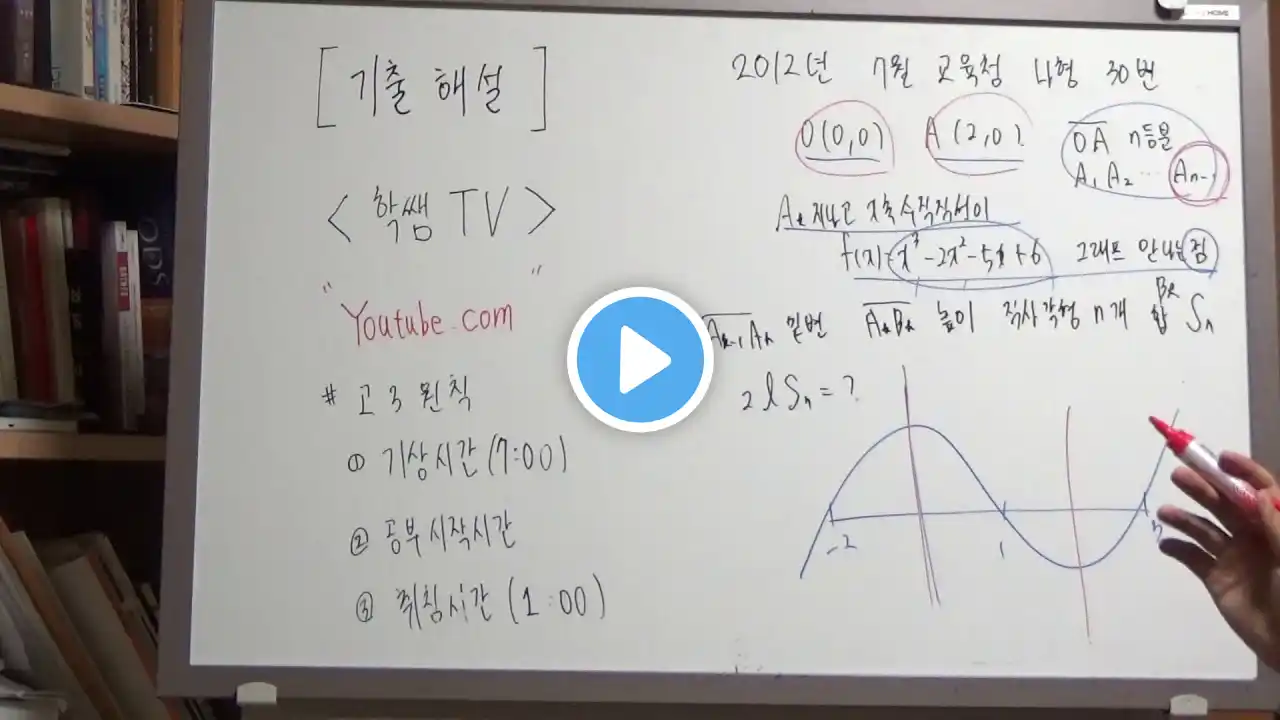 [ 기출 해설 ]
< 학쌤 TV >
" Youtube.com "
# 고3 원칙
① 기상시간 (7:00)
② 공부시작시간
③ 취침시간 (1:00)
2012년 7월 교육청 나형 30번
O(0,0) A(2,0) OA n등분
A₁ A₂ ⋯ Aₙ₋₁
Aₖ 지나고 x축 수직직선이
f(x)=x³-2x²-5x+6 그래프 만나는 점
Bₖ
Aₖ₋₁Aₖ 밑변 AₖBₖ 높이 직사각형 n개 합 Sₙ
2 l Sₙ = ?
-2 1 3